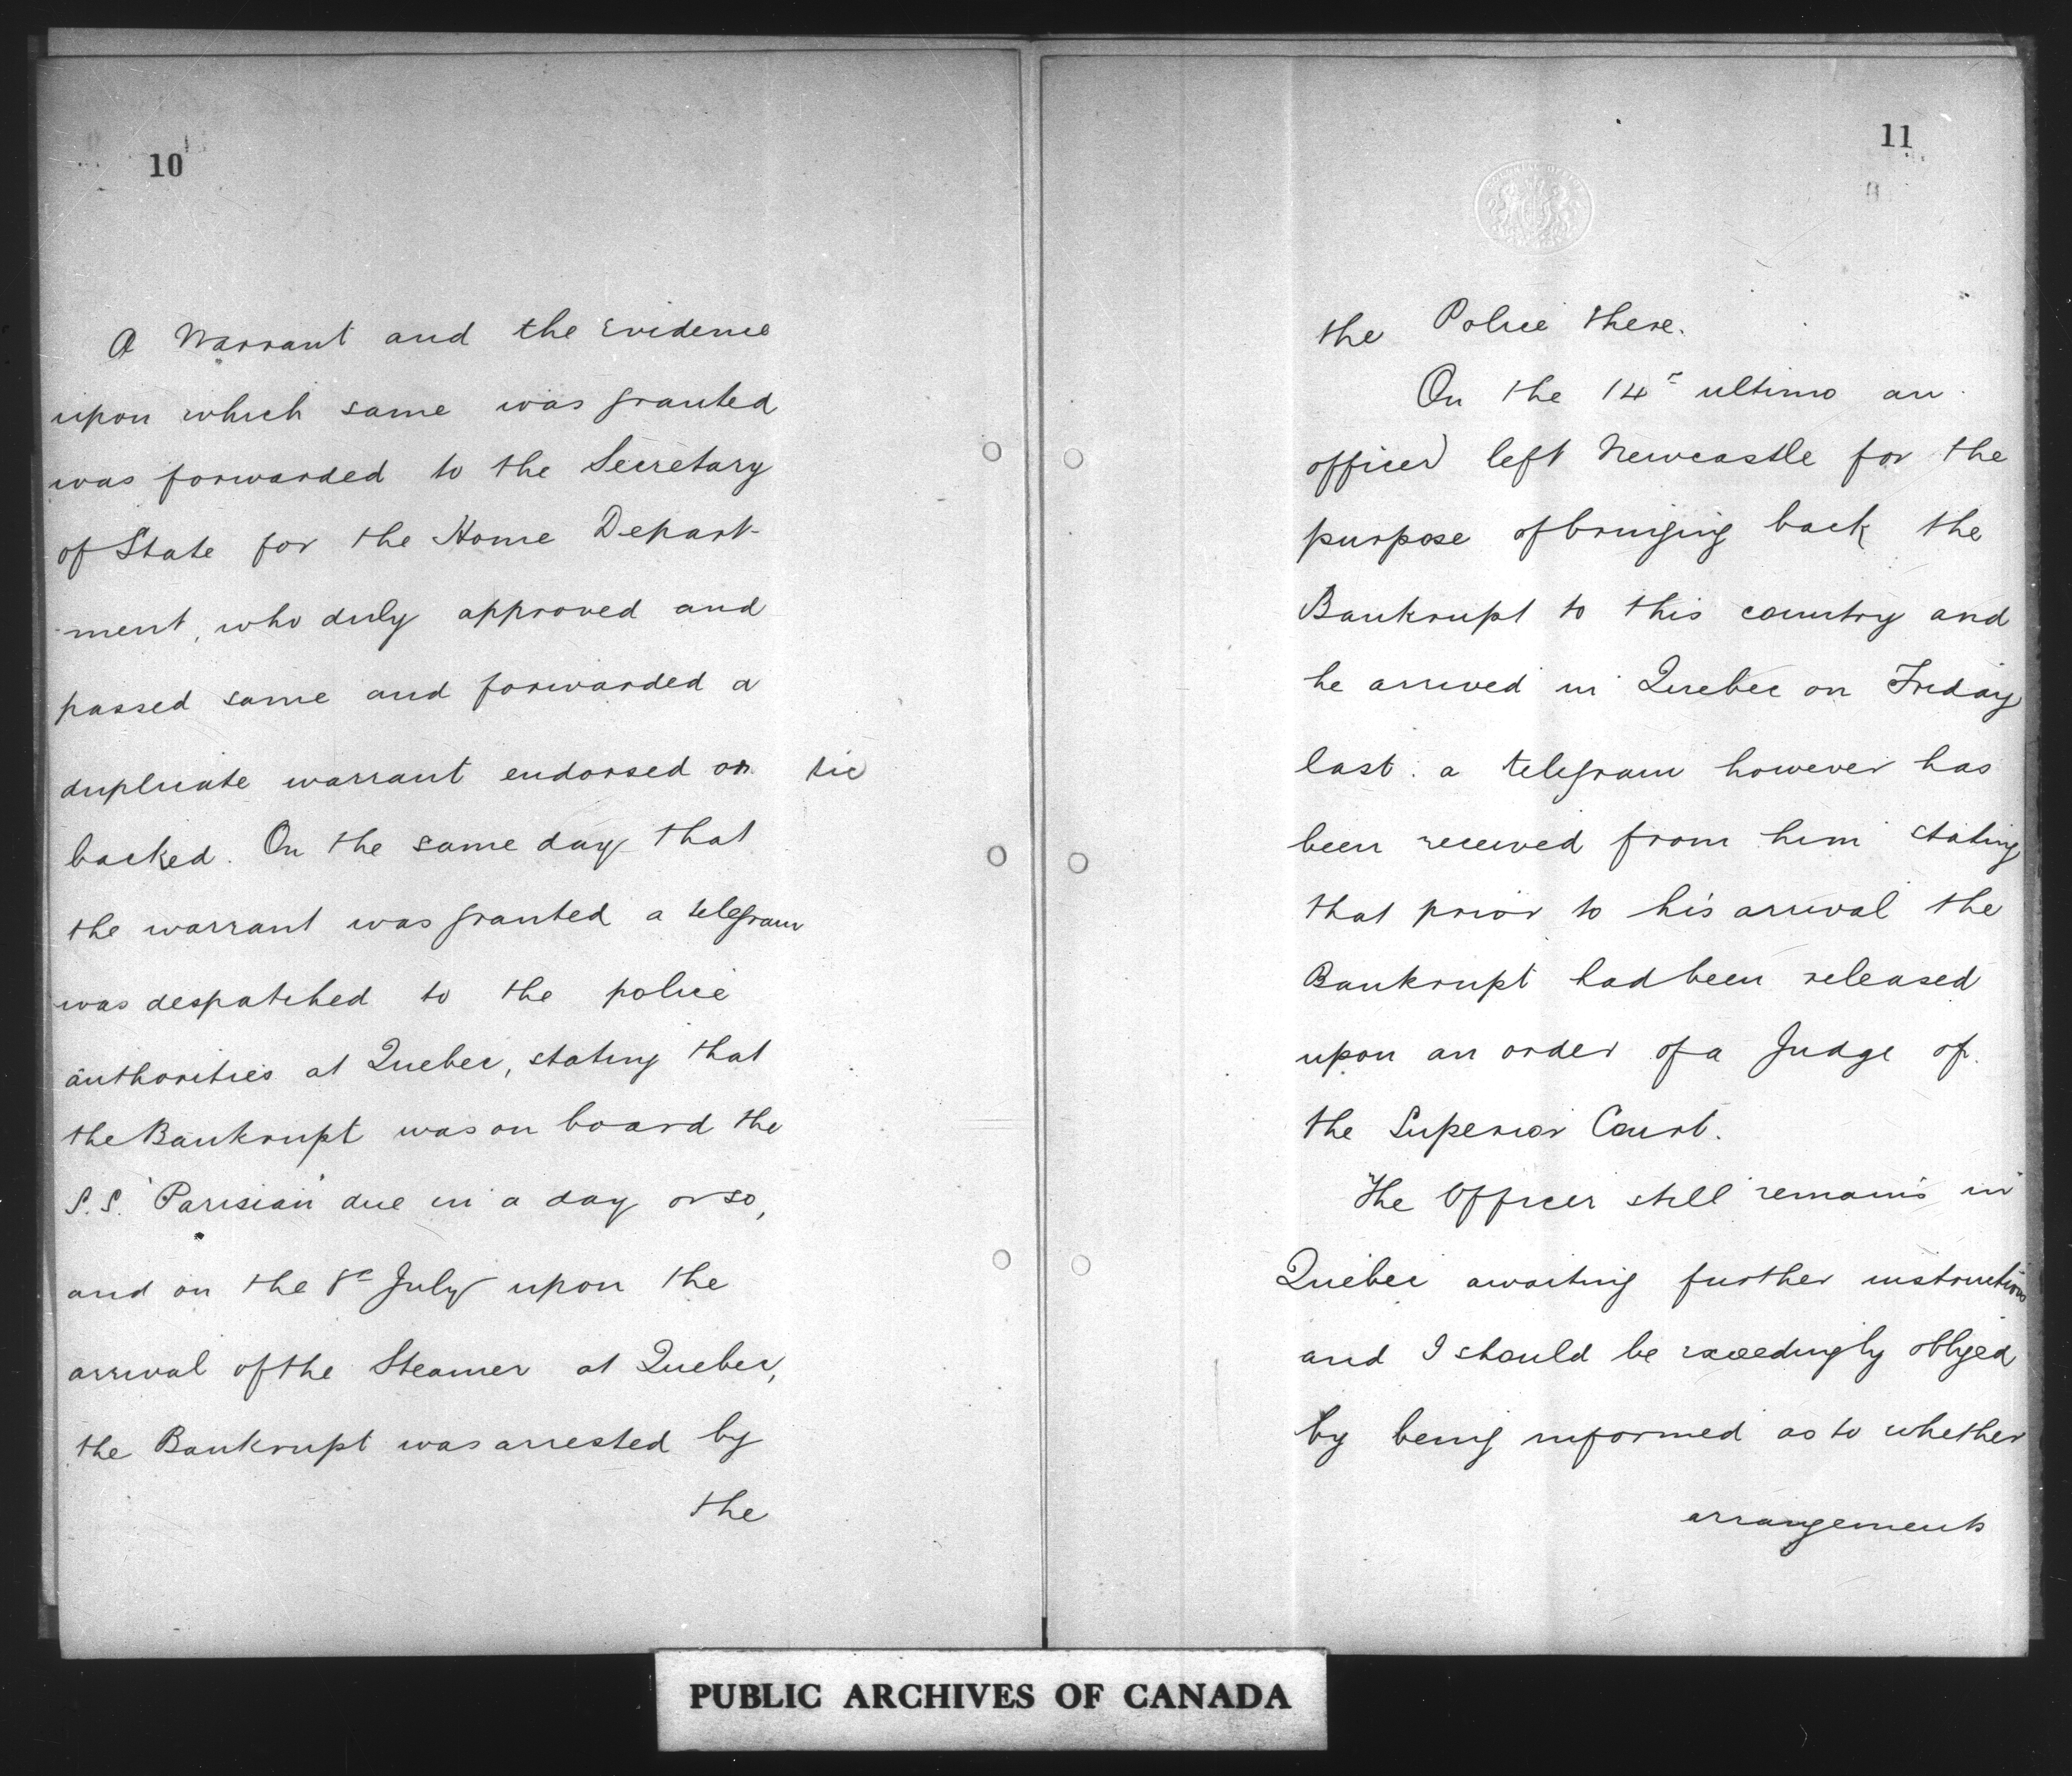 10
A Warrant and the Evidence
upon which same was granted
was forwarded to the Secretary
of State for the Home Depart-
-ment, who duly approved and
passed same and forwarded a
duplicate warrant endorsed or sic
backed. On the same day that
the warrant was granted a telegram
was despatched to the police
authorities at Quebec, stating that
the Bankrupt was on board the
S.S. "Parisian" due in a day or so,
and on the 8th July upon the
arrival of the Steamer at Quebec,
the Bankrupt was arrested by
the
11
the Police there.
On the 14th ultimo an
officer left Newcastle for the
purpose of bringing back the
Bankrupt to this country and
he arrived in Quebec on Friday
last. a telegram however has
been received from him stating
that prior to his arrival the
Bankrupt had been released
upon an order of a Judge of
the Superior Court.
The Officer still remains in
Quebec awaiting further instructions
and I should be exceedingly obliged
by being informed as to whether
arrangements
PUBLIC ARCHIVES OF CANADA